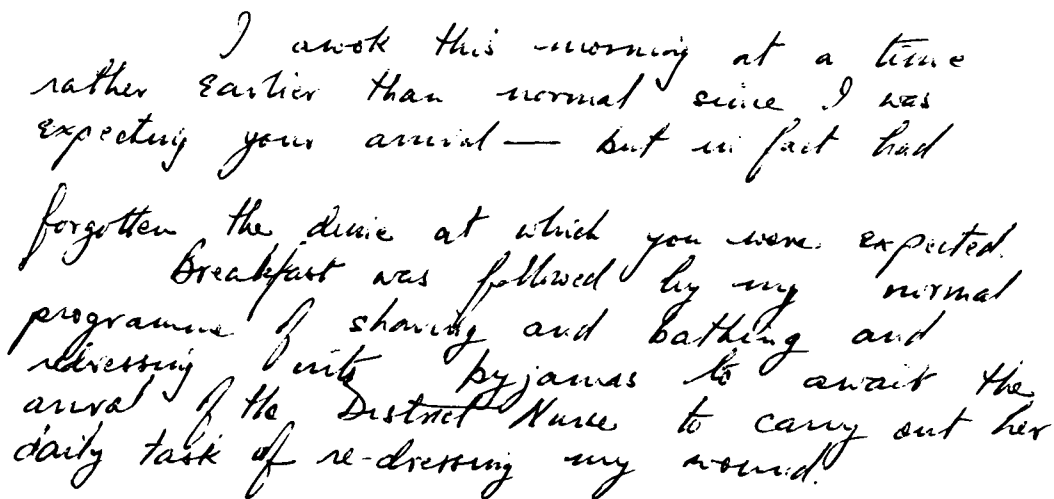 I awok this morning at a time
rather earlier than normal since I was
expecting your arrival — but in fact had
forgotten the time at which you were expected.
Breakfast was followed by my normal
programme of shaving and bathing and
redressing into pyjamas to await the
arival of the District Nurse to carry out her
daily task of re-dressing my wound.